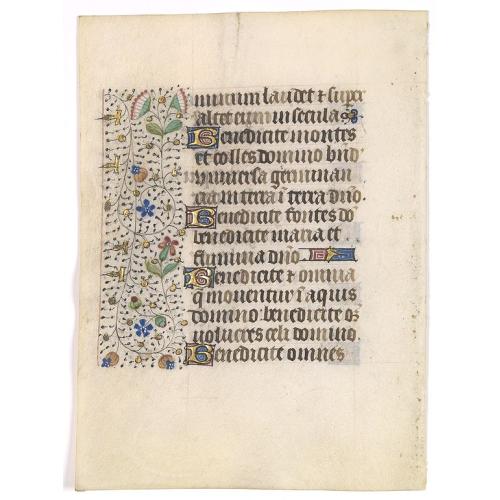 mirium laudet & super
altet eum in secula
Benedicite montes
et colles domino bnd
universa germinan
cia in terra i terra dno.
Benedicite fontes do
benedicite maria et
flumina dno
Benedicite & omnia
q moventur i aquis
domino benedicite os
volucres celi domino.
Benedicite omnes